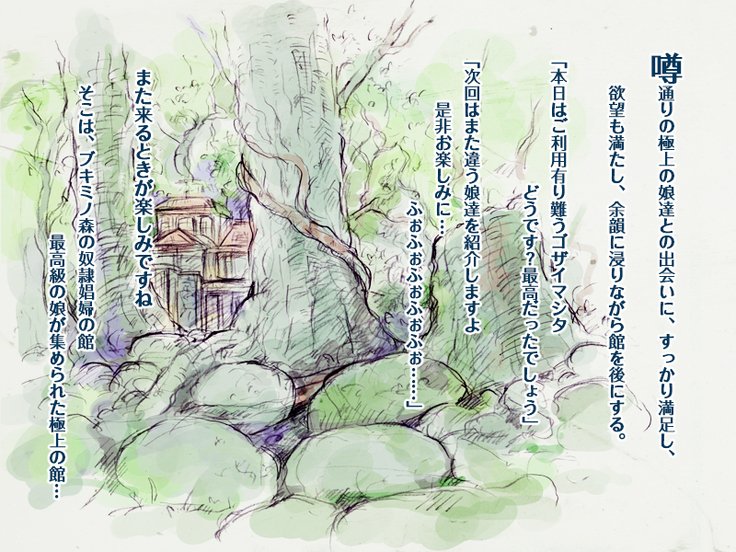 噂通りの極上の娘達との出会いに、すっかり満足し、
欲望も満たし、余韻に浸りながら館を後にする。
「本日はご利用有り難うゴザイマシタ
どうです?最高だったでしょう」
「次回はまた違う娘達を紹介しますよ
是非お楽しみに…
ふぉふぉふぉふぉふぉ……」
また来るときが楽しみですね
そこは、ブキミノ森の奴隷娼婦の館
最高級の娘が集められた極上の館…